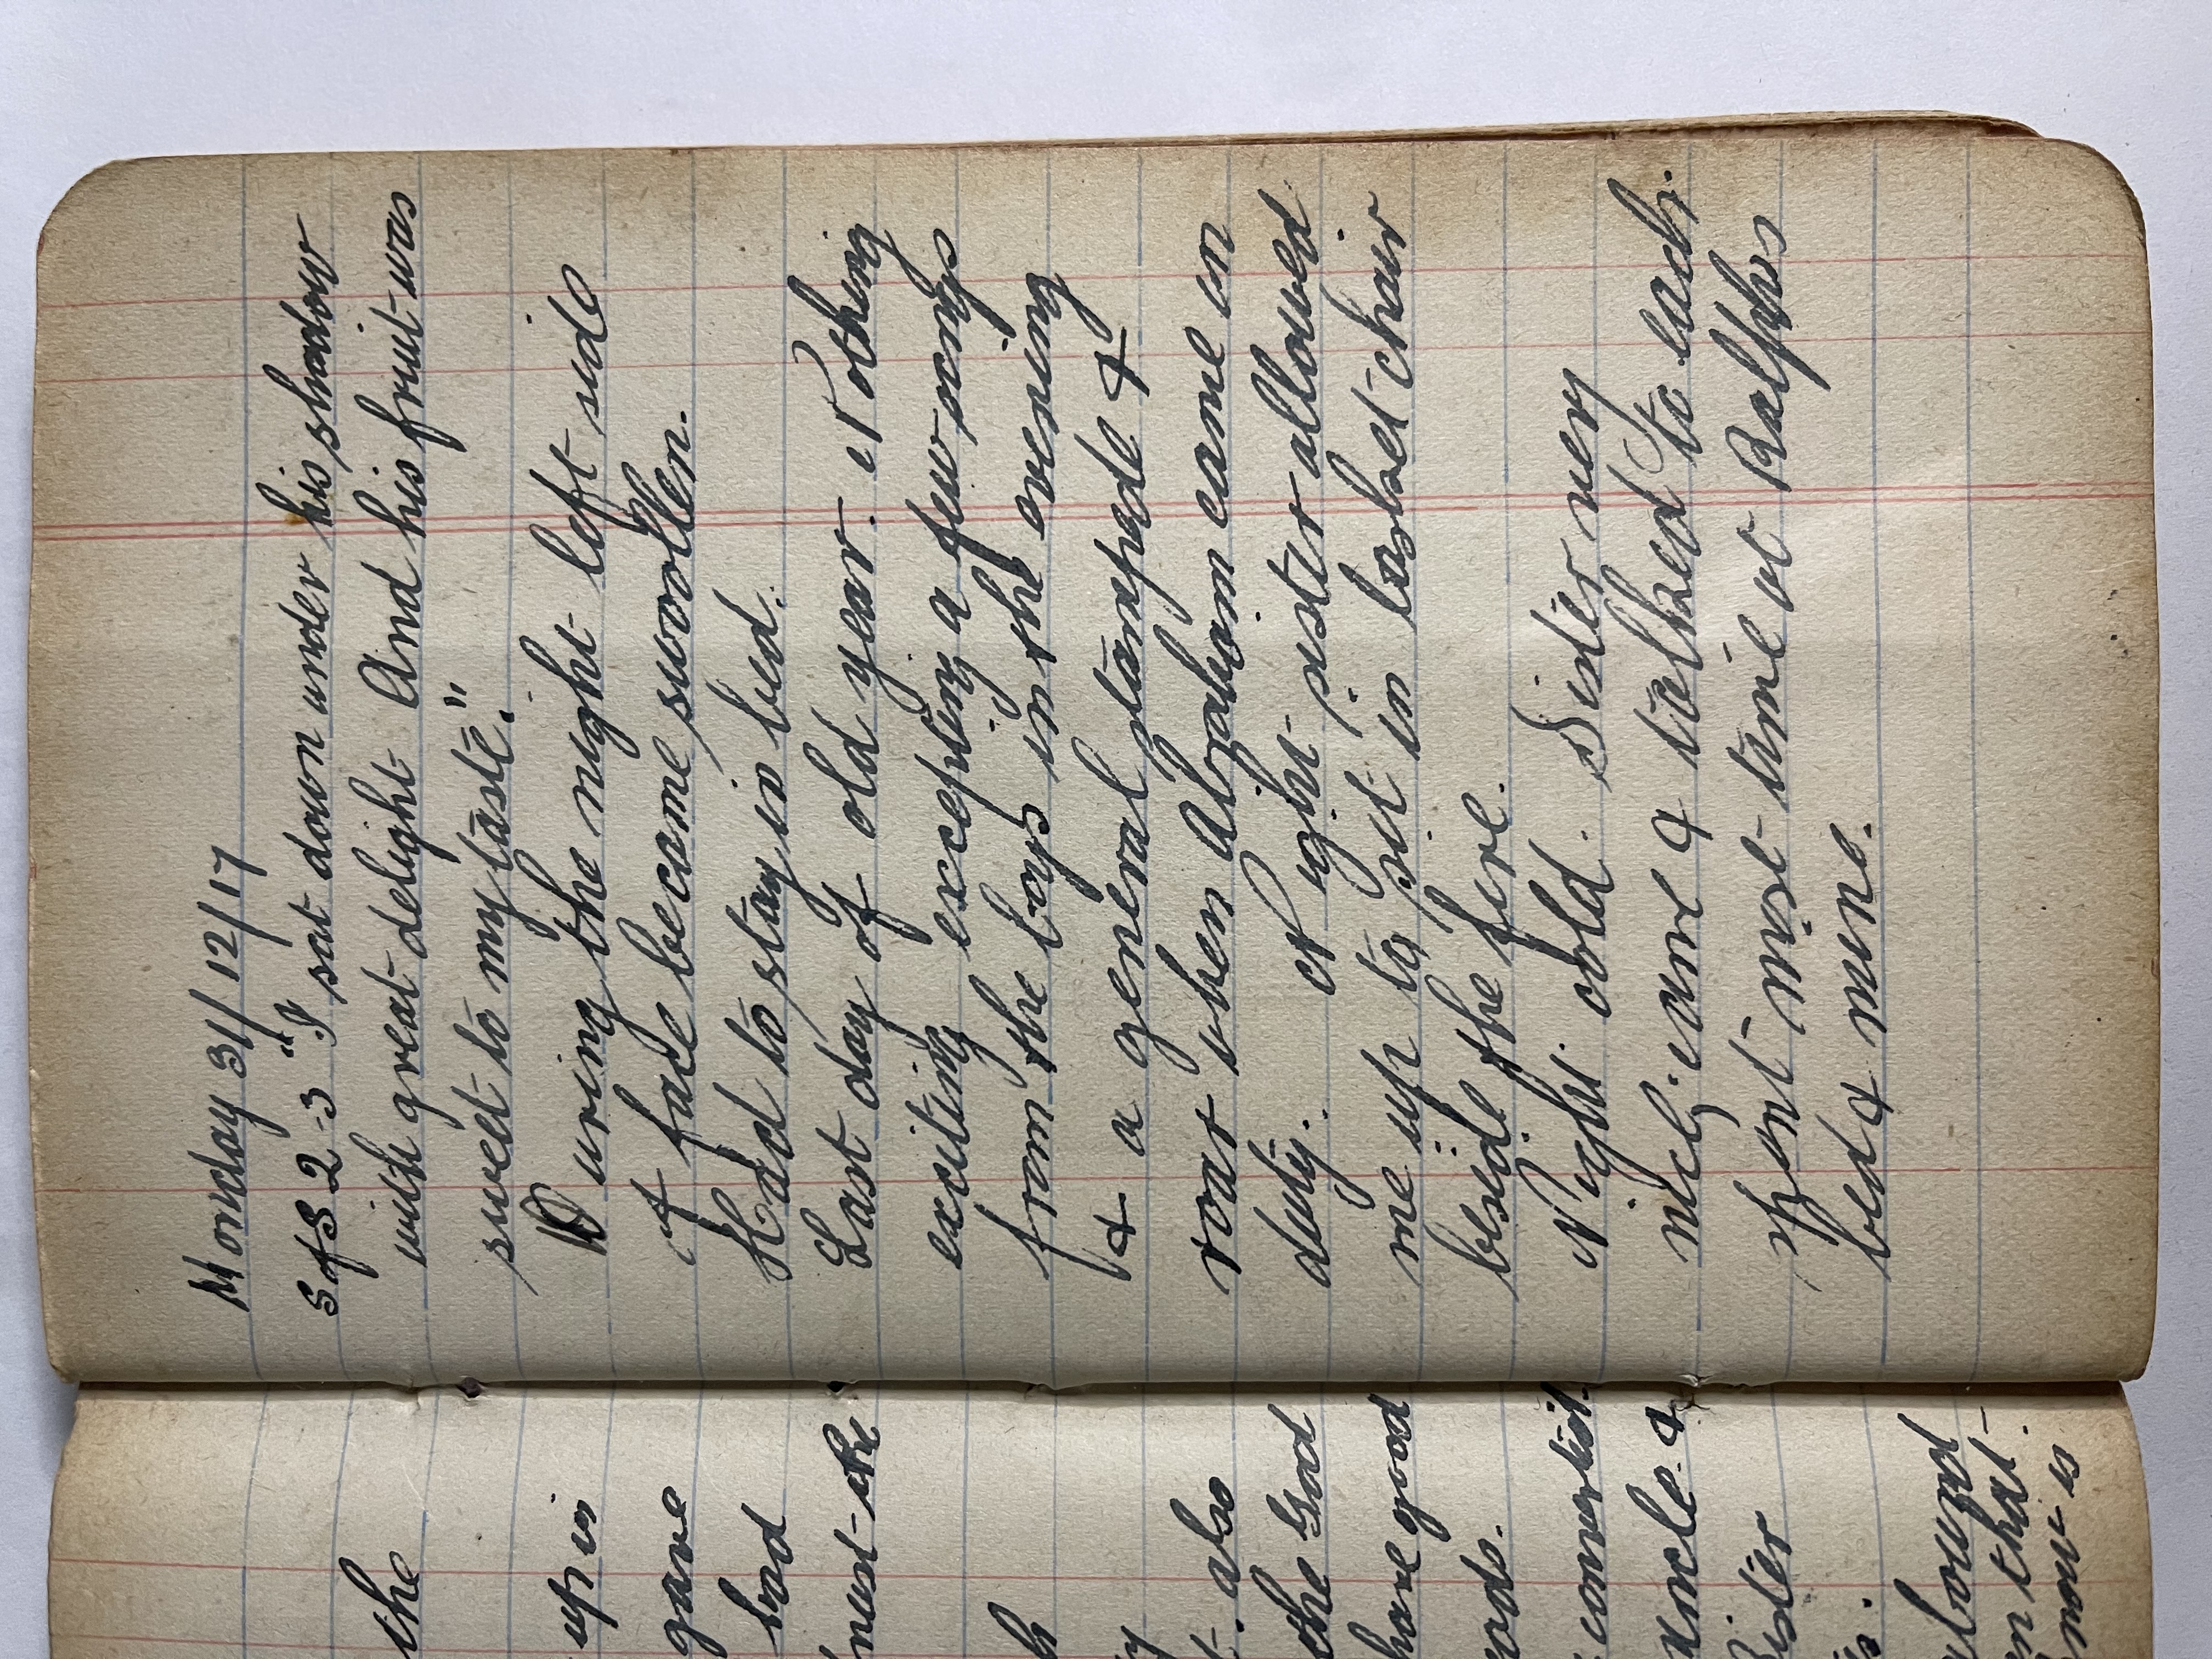 the
up in
gave
bad
also
the God
have good
Sister
en that
now is
Monday 31/12/17
S of S 2-3 "I sat down under his shadow
with great delight And his fruit was
sweet to my taste."
During the night left side
of face became swollen.
Had to stay in bed.
Last day of old year. Nothing
exciting excepting a few songs
from the boys in the evening
& a general stampede &
roar when Abraham came on
duty. At eight sister allowed
me up to sit in basket chair
beside the fire.
Night cold. Sister very
nicely came & talked to each.
Spent most time at Ralphs
bed & mine.